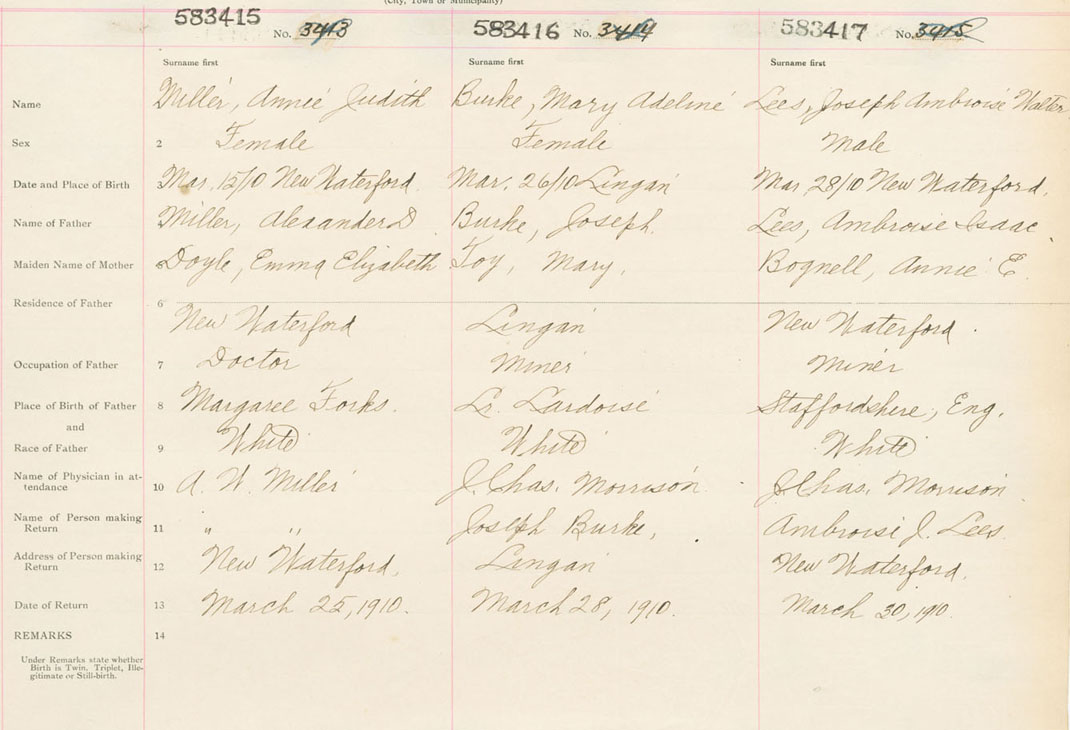 (City, Town or Municipality)
583415 No. 3413 583416 No. 3414 583417 No. 3415
Surname first Surname first Surname first
Name Miller, Annie Judith Burke, Mary Adeline Lees, Joseph Ambroise Walter
Sex 2 Female Female Male
Date and Place of Birth Mar. 15/10 New Waterford. Mar. 26/10 Lingan Mar 28/10 New Waterford.
Name of Father 4 Miller, Alexander D Burke, Joseph. Lees, Ambroise Isaac
Maiden Name of Mother 5 Doyle, Emma Elizabeth Toy, Mary. Bognell, Annie E.
Residence of Father 6
New Waterford Lingan New Waterford.
Occupation of Father 7 Doctor Miner Miner
Place of Birth of Father 8 Margaree Forks. Lr. Lardoise Staffordshire, Eng.
and
Race of Father 9 White White White
Name of Physician in at-
tendance 10 A. W. Miller J. Chas. Morrison J. Chas. Morrison
Name of Person making
Return 11 " " Joseph Burke, Ambroise J. Lees.
Address of Person making
Return 12 New Waterford. Lingan New Waterford.
Date of Return 13 March 25, 1910. March 28, 1910. March 30, 1910.
REMARKS 14
Under Remarks state whether
Birth is Twin. Triplet, Ille-
gitimate or Still-birth.